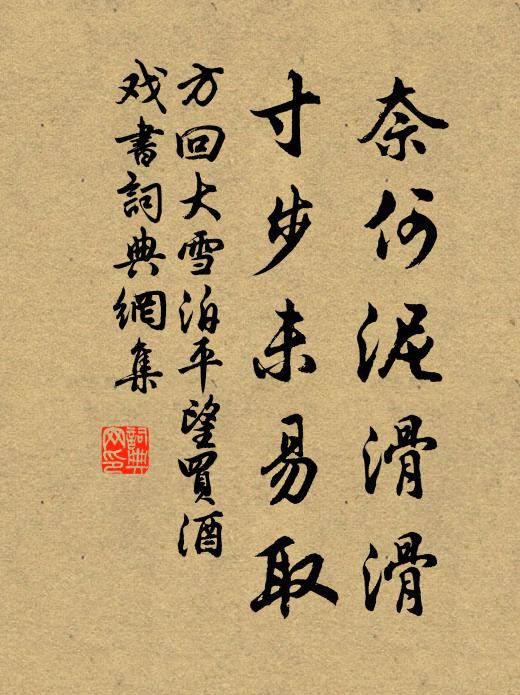 奈何泥滑滑
寸步未易取
方回大雪泊平望買酒
戏書詞典網集
詞典
网印